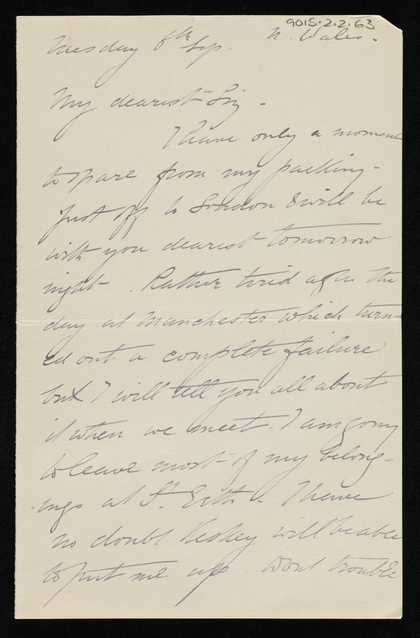 9015-2-2-63
Tuesday 8th Sep. N. Wales.
My dearest Liz -
I have only a moment
to spare from my packing -
Just off to London & will be
with you dearest tomorrow
night. Rather tired after the
day at Manchester which turn-
ed out a complete failure
but I will tell you all about
it when we meet. I am going
to leave most of my belong-
ings at St. & I have
no doubt will be able
to put me up. Dont trouble